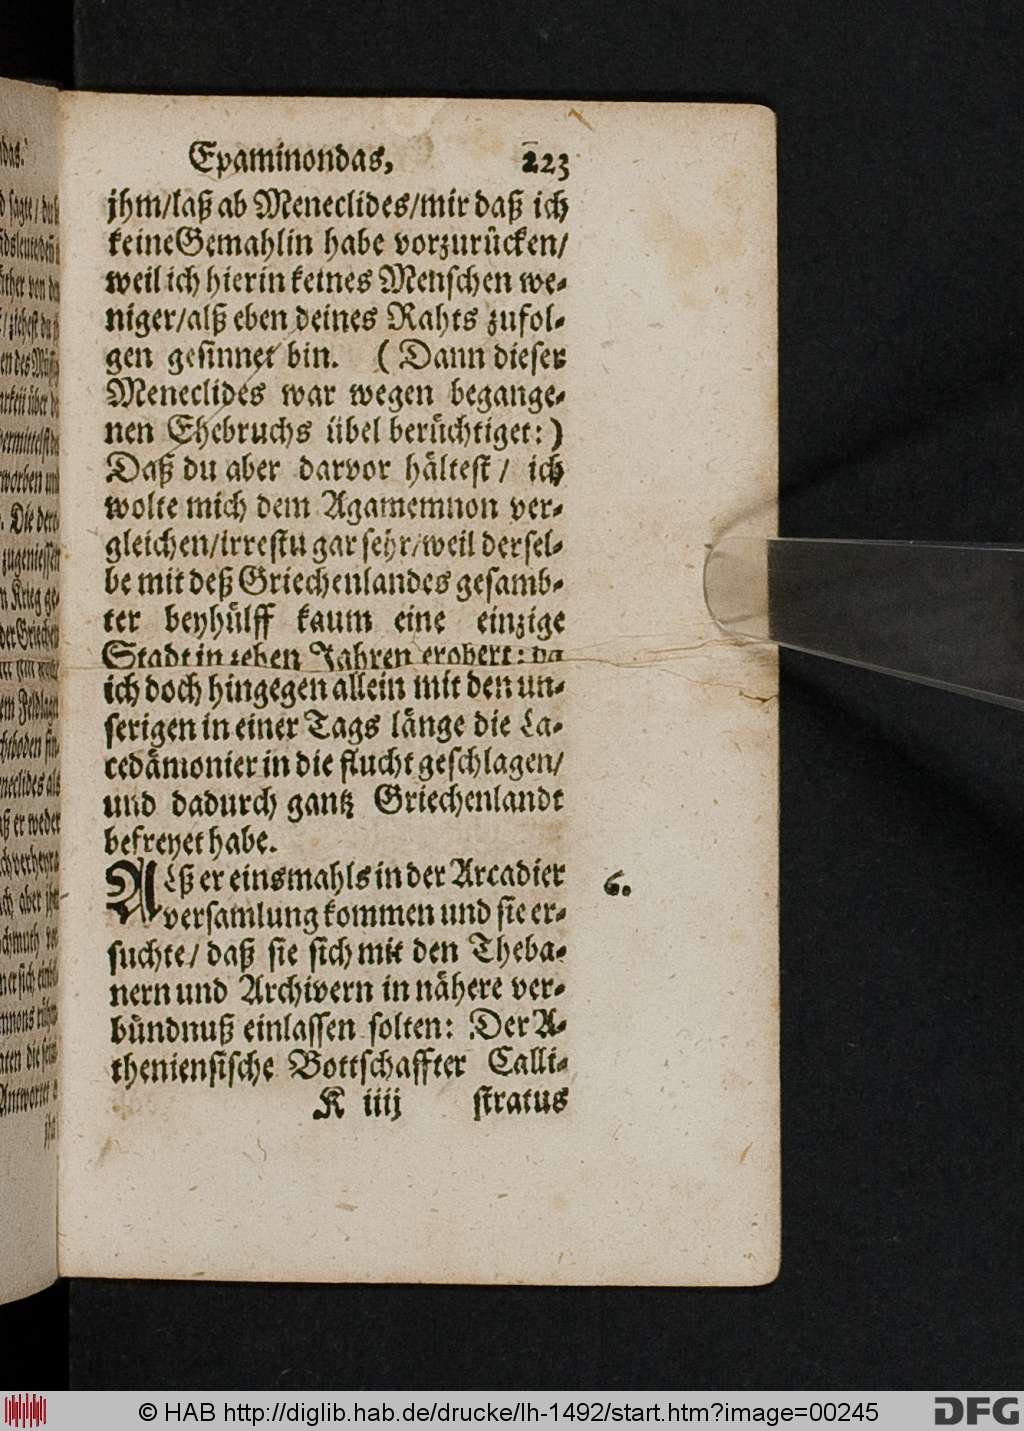 Epaminondas, 223
jhm/laß ab Meneclides/mir daß ich
keine Gemahlin habe vorzurücken/
weil ich hierin keines Menschen we-
niger/alß eben deines Rahts zufol-
gen gesinnet bin. (Dann dieser
Meneclides war wegen begange-
nen Ehebruchs übel berüchtiget:)
Daß du aber darvor hältest/ ich
wolte mich dem Agamemnon ver-
gleichen/irrestu gar sehr/weil dersel-
be mit deß Griechenlandes gesamb-
ter beyhülff kaum eine einzige
Stadt in zehen Jahren erobert: da
ich doch hingegen allein mit den un-
serigen in einer Tags länge die La-
cedämonier in die flucht geschlagen/
und dadurch gantz Griechenlandt
befreyet habe.
Alß er einsmahls in der Arcadier 6.
versamlung kommen und sie er-
suchte/ daß sie sich mit den Theba-
nern und Archivern in nähere ver-
bündnuß einlassen solten: Der A-
theniensische Bottschaffter Calli-
K iiij stratus
© HAB http://diglib.hab.de/drucke/lh-1492/start.htm?image=00245
DFG